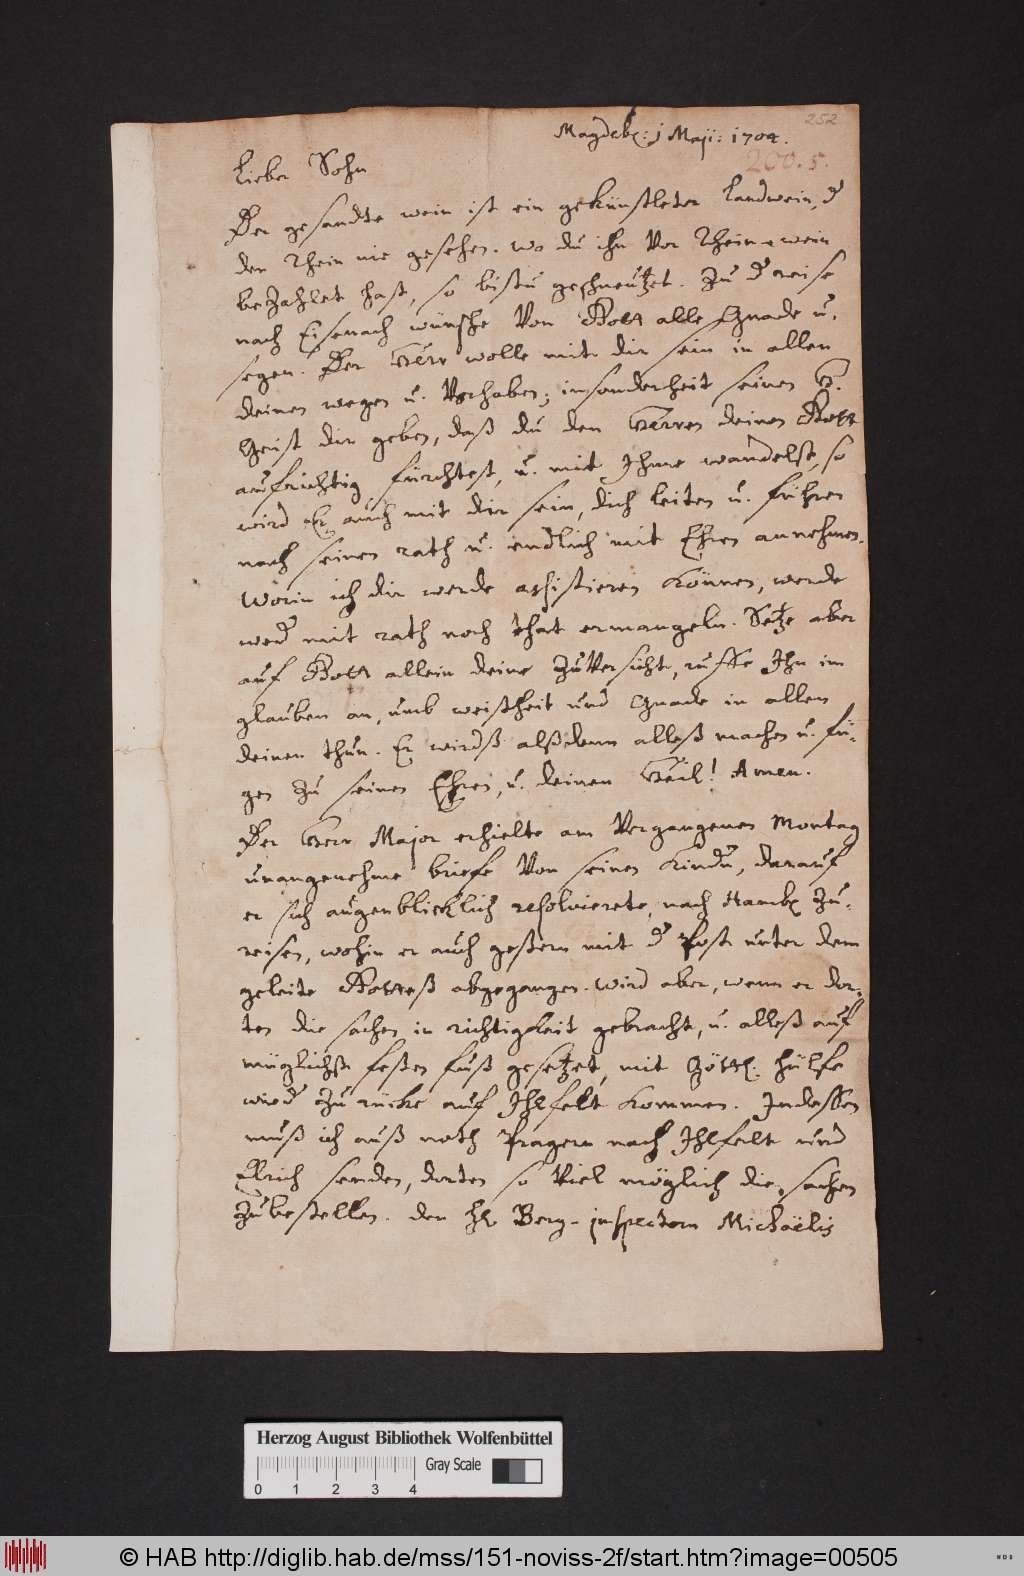 252
Magdeb: 1 Maji: 1704.
200. 5.
Lieber Sohn
Der gesandte wein ist ein gekünstleter Landwein, d
den Rhein nie gesehen. wo du ihn Vor Rheinwein
bezahlet hast, so bistu geschneützet. Zu d reise
nach Eisenach wünsche Von Gott alle Gnade u.
segen. Der Herr wolle mit dir sein in allen
deinen wegen u. Vorhaben; insonderheit seinen H.
Geist dir geben, daß du den Herren deinen Gott
aufrichtig fürchtest, u. mit Ihme wandelst, so
wird Er auch mit dir sein, dich leiten u. führen
nach seinen rath u. endlich mit Ehren annehmen.
Worin ich dir werde assistieren können, werde
wed mit rath noch that ermangeln. Setze aber
auf Gott allein deine zuversicht, ruffe Ihn im
glauben an, umb weißheit und Gnade in allen
deinen thun. Er wirdß alßdenn alleß machen u. fü-
gen zu seinen Ehren, u. deinen Heil! Amen.
Der Herr Major erhielte am Vergangenen Montag
unangenehme briefe Von seinen Kindn, darauf
er sich augenblicklich resolvierete, nach Hamb zu-
reisen, wohin er auch gestern mit d Post unter dem
geleite Gotteß abgegangen. wird aber, wenn er dor-
ten die sachen in richtigkeit gebracht, u. alleß auf
müglichst festen fuß gesetzet, mit Göttl. hülfe
wied zurücke auf Ihlfelt kommen. Indessen
muß ich auß noth Pragern nach Ihlfelt und
Elrich senden, dorten so Viel möglich die sachen
zubestellen. den H. Berg-inspectorn Michaëlis
Herzog August Bibliothek Wolfenbüttel
Gray Scale
0 1 2 3 4
© HAB http://diglib.hab.de/mss/151-noviss-2f/start.htm?image=00505